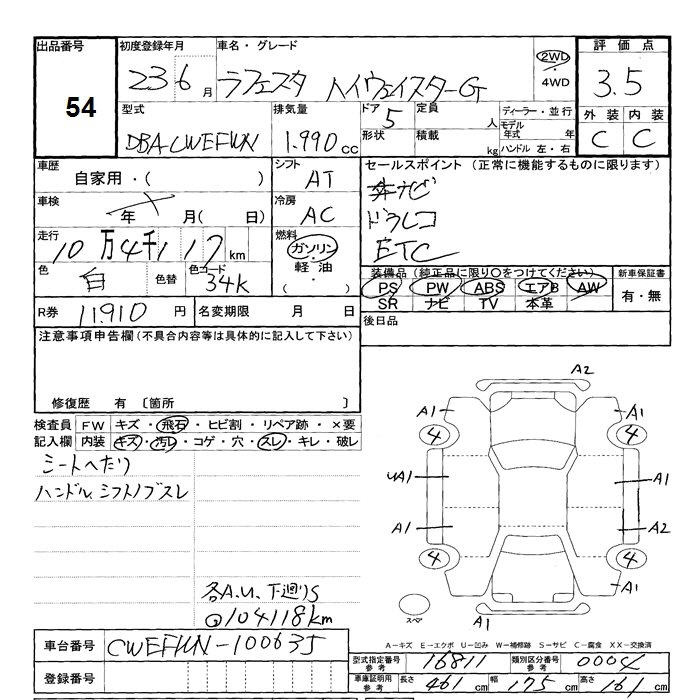 出品番号 初度登録年月 車名・グレード 評価点
54
23 6月 ラフェスタ ハイウェイスターG 2WD 4WD 3.5
型式 排気量 ドア 定員 人 ディーラー・並行 外装 内装
DBA-CWEFWN 1.990cc 5 形状 積載 kg モデル年式 年 ハンドル 左・右 C C
車歴 自家用・( ) シフト AT セールスポイント(正常に機能するものに限ります)
車検 年 月( 日) 冷房 AC 本ナビ
ドラレコ
ETC
走行 10万4千117km 燃料 ガソリン・軽油・( )
色 白 色替 色コード 34K 装備品(純正品に限り○をつけてください) 新車保証書
PS PW ABS エアB AW 有・無
SR ナビ TV 本革
R券 11.910円 名変期限 月 日 後日品
注意事項申告欄(不具合内容等は具体的に記入して下さい)
修復歴 有 〔箇所 〕
検査員記入欄 FW キズ・飛石・ヒビ割・リペア跡・×要
内装 キズ・汚レ・コゲ・穴・スレ・キレ・破レ
シートへたり
ハンドル、シフトノブスレ
各A.U、下廻りS
@104118km
A2
A1 A1
4 4
UA1 A1
A1 A2
4 4
A1
スペア A1
A−キズ E−エクボ U−凹み W−補修跡 S−サビ C−腐食 XX−交換済
車台番号 CWEFWN-100635
登録番号
型式指定番号参考 16811 類別区分番号参考 0004
車庫証明用参考 長さ 461cm 幅 175cm 高さ 161cm